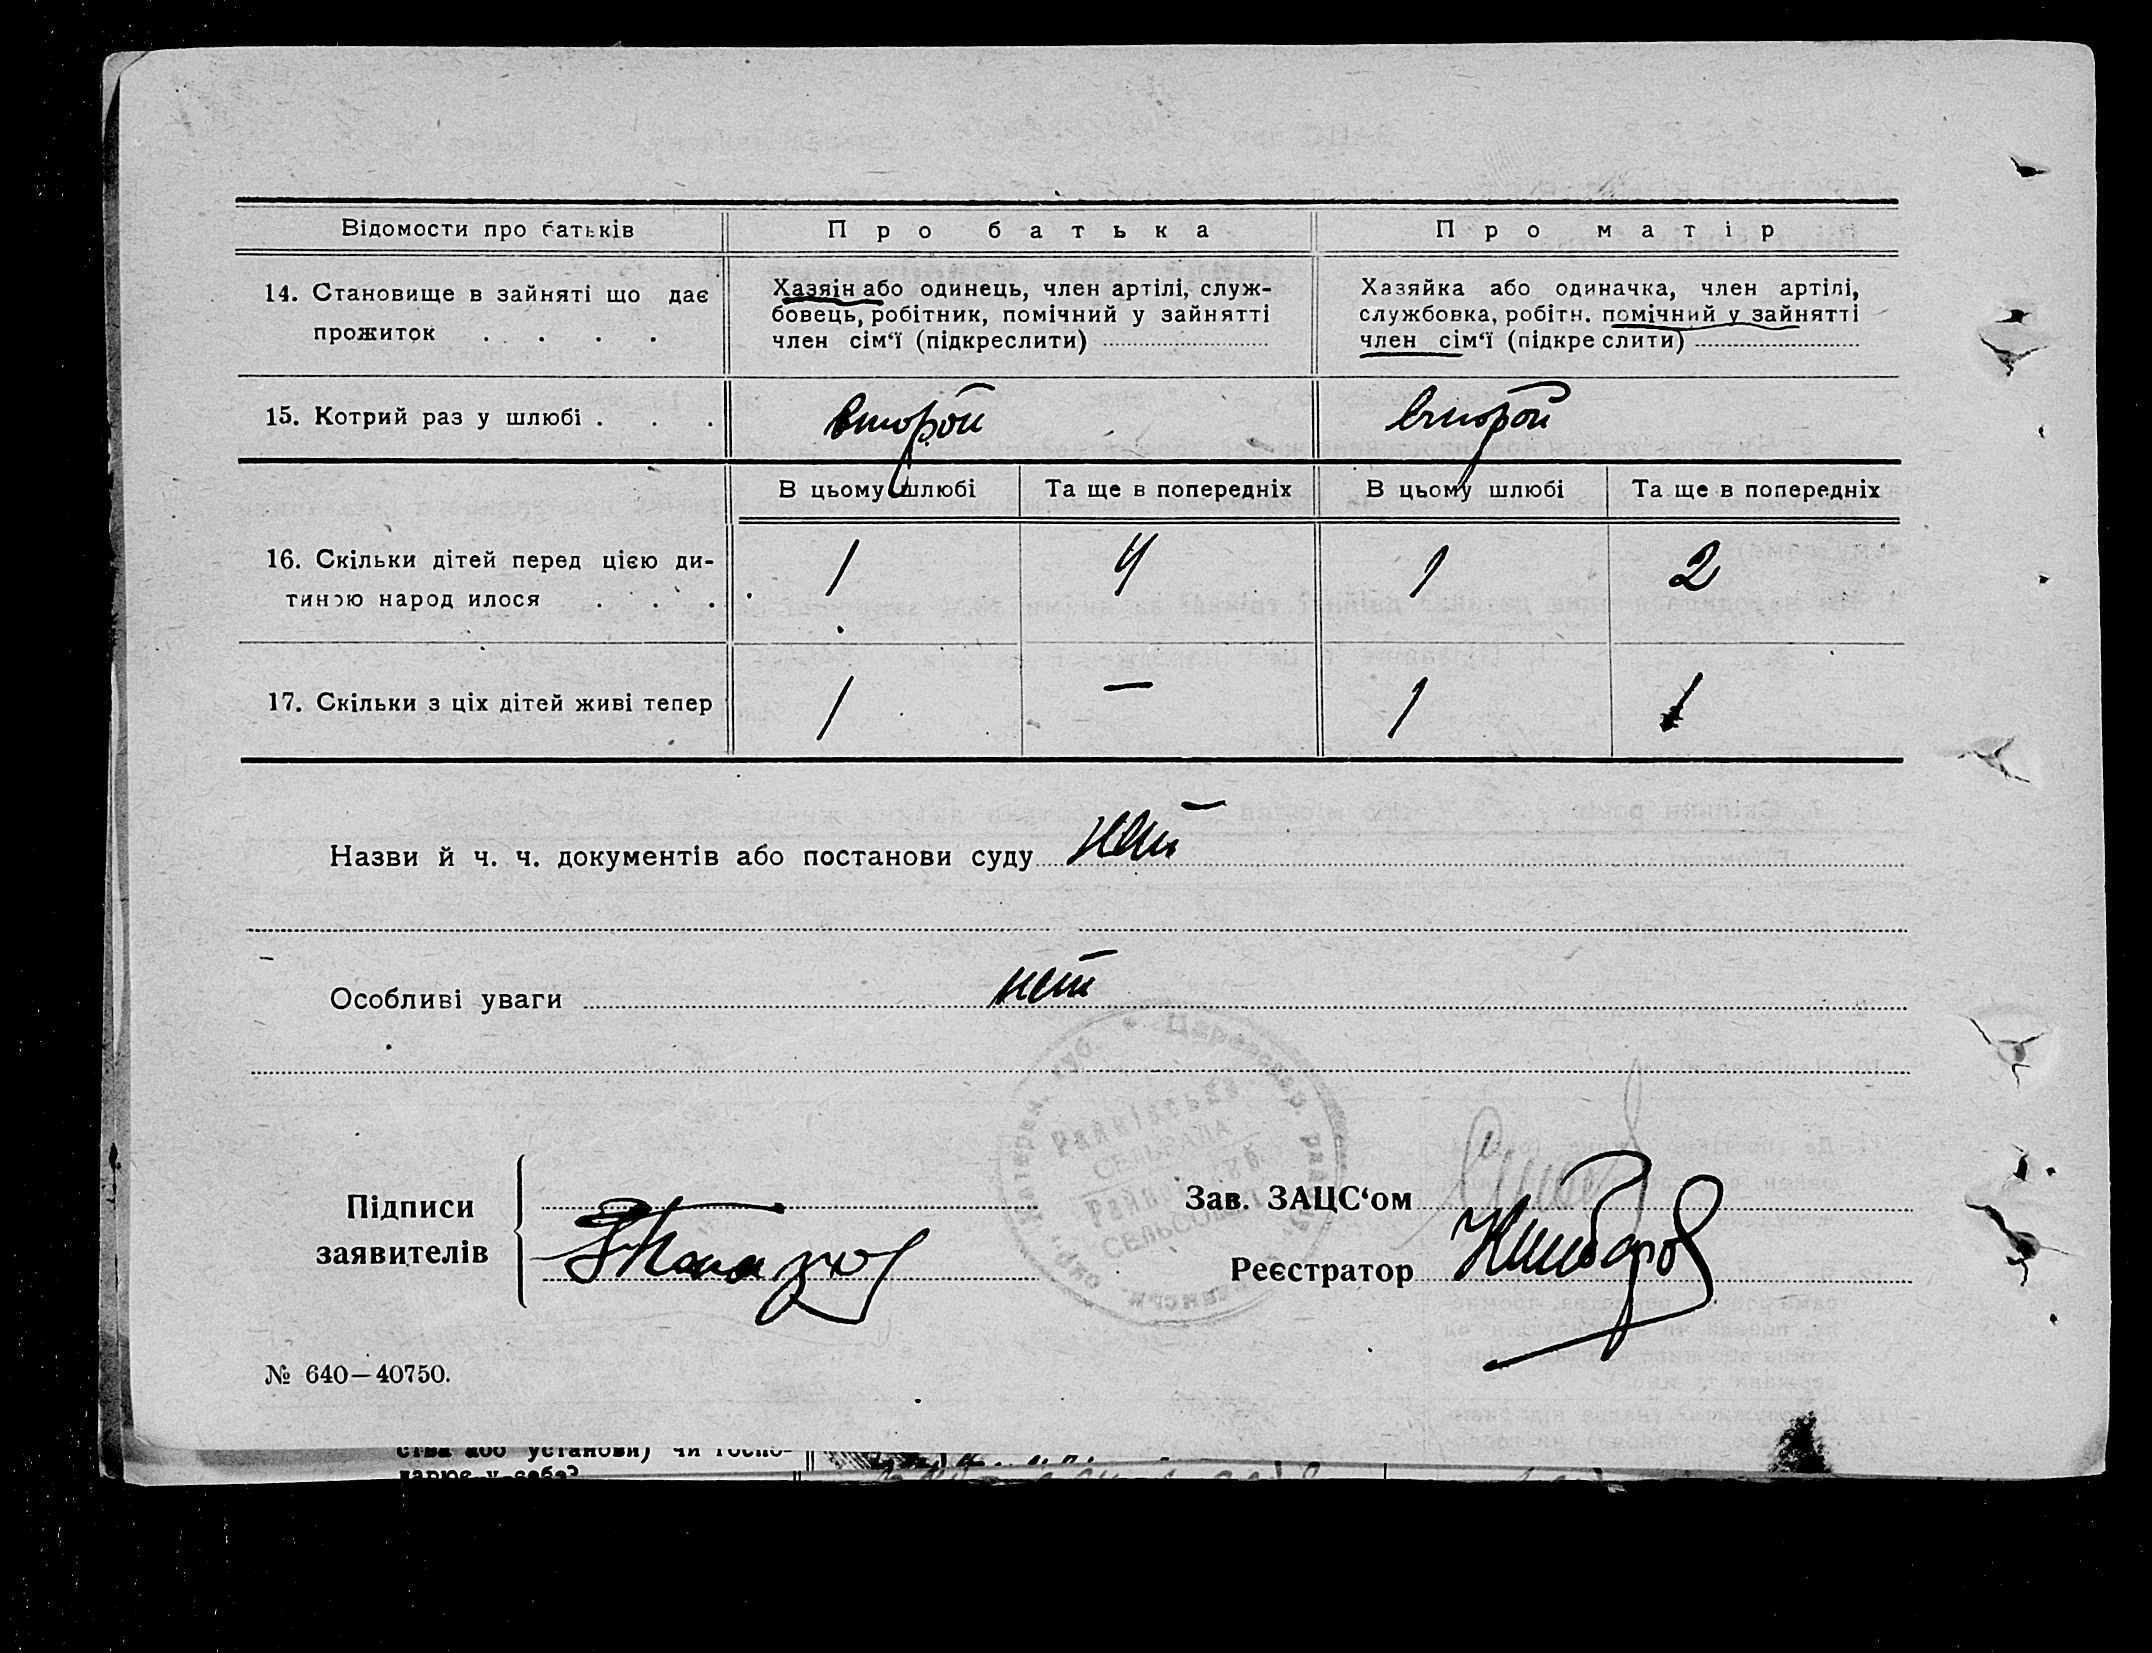 Відомости про батьків
Про батька
Про матір
14. Становище в зайняті що дає
прожиток . . . .
Хазяін або одинець, член артілі, служ-
бовець, робітник, помічний у зайнятті
член сім‘ї (підкреслити)
Хазяйка або одиначка, член артілі,
службовка, робітн. помічний у зайнятті
член сім‘ї (підкреслити)
15. Котрий раз у шлюбі . . .
второй
второй
В цьому шлюбі
Та ще в попередніх
В цьому шлюбі
Та ще в попередніх
16. Скільки дітей перед цією ди-
тиною народилося . . . .
1
4
1
2
17. Скільки з ціх дітей живі тепер
1
—
1
1
Назви й ч. ч. документів або постанови суду нет
Особливі уваги нет
Царекост. СЕЛЬРАДА
СЕЛЬСОВЕТ
Підписи
заявителів
Зав. ЗАЦС‘ом
Реєстратор
№ 640—40750.
ства або установи) чи госпо-
дарює у себе?